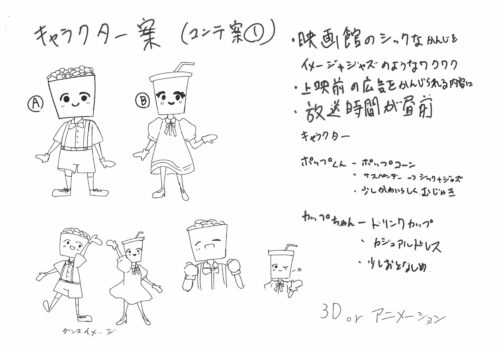 キャラクター案 (コンテ案①)
・映画館のシックなかんじを
イメージ+ジャズのようなワクワク
・上映前の広告をかんじられる内容に
・放送時間が昼前
キャラクター
Ⓐ
Ⓑ
ポップくん ー ポップコーン
・サスペンダー → シック+ジャズ
・少しかわいらしく むじゃき
カップちゃん ー ドリンクカップ
・カジュアルドレス
・少しおとなしめ
ダンスイメージ
3D or アニメーション